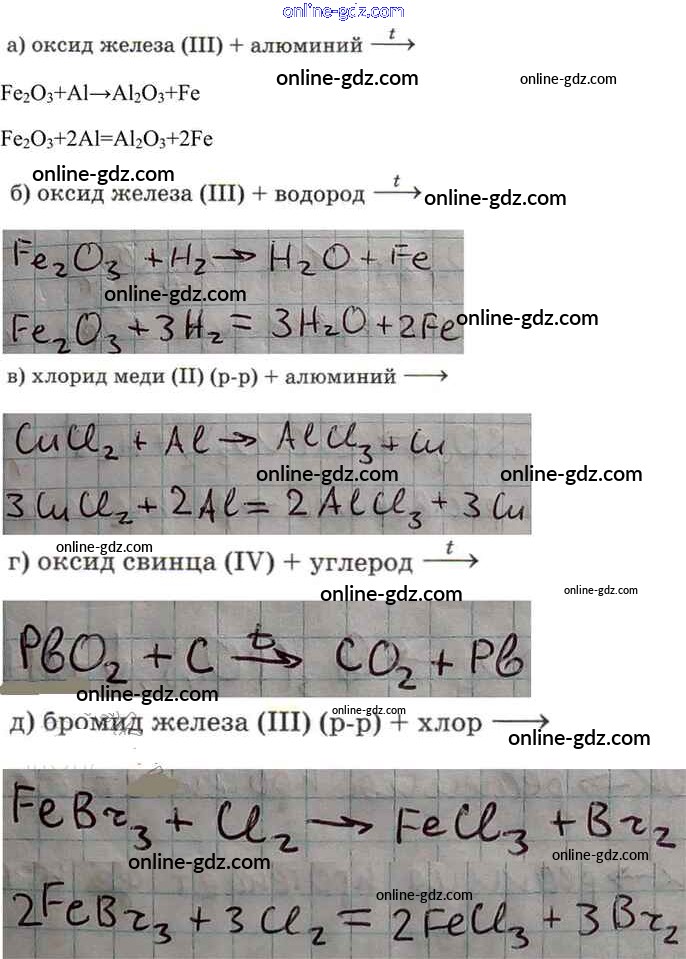 online-gdz.com
а) оксид железа (III) + алюминий t→
online-gdz.com
online-gdz.com
Fe₂O₃+Al→Al₂O₃+Fe
Fe₂O₃+2Al=Al₂O₃+2Fe
online-gdz.com
б) оксид железа (III) + водород t→
online-gdz.com
Fe₂O₃ + H₂ → H₂O + Fe
online-gdz.com
Fe₂O₃ + 3H₂ = 3H₂O + 2Fe
online-gdz.com
в) хлорид меди (II) (р-р) + алюминий →
CuCl₂ + Al → AlCl₃ + Cu
online-gdz.com
online-gdz.com
3CuCl₂ + 2Al = 2AlCl₃ + 3Cu
online-gdz.com
г) оксид свинца (IV) + углерод t→
online-gdz.com
online-gdz.com
PbO₂ + C t→ CO₂ + Pb
online-gdz.com
online-gdz.com
д) бромид железа (III) (р-р) + хлор →
online-gdz.com
FeBr₃ + Cl₂ → FeCl₃ + Br₂
online-gdz.com
online-gdz.com
online-gdz.com
2FeBr₃ + 3Cl₂ = 2FeCl₃ + 3Br₂